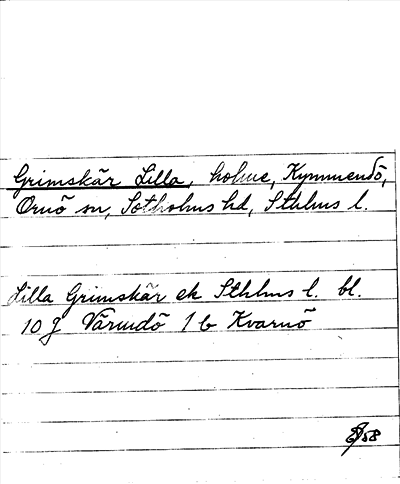 Grimskär Lilla, holme, Kymmendö,
Ornö sn, Sotholms hd, Sthlms l.
Lilla Grimskär ek Sthlms l. bl.
10 J Värmdö 1 b Kvarnö
58